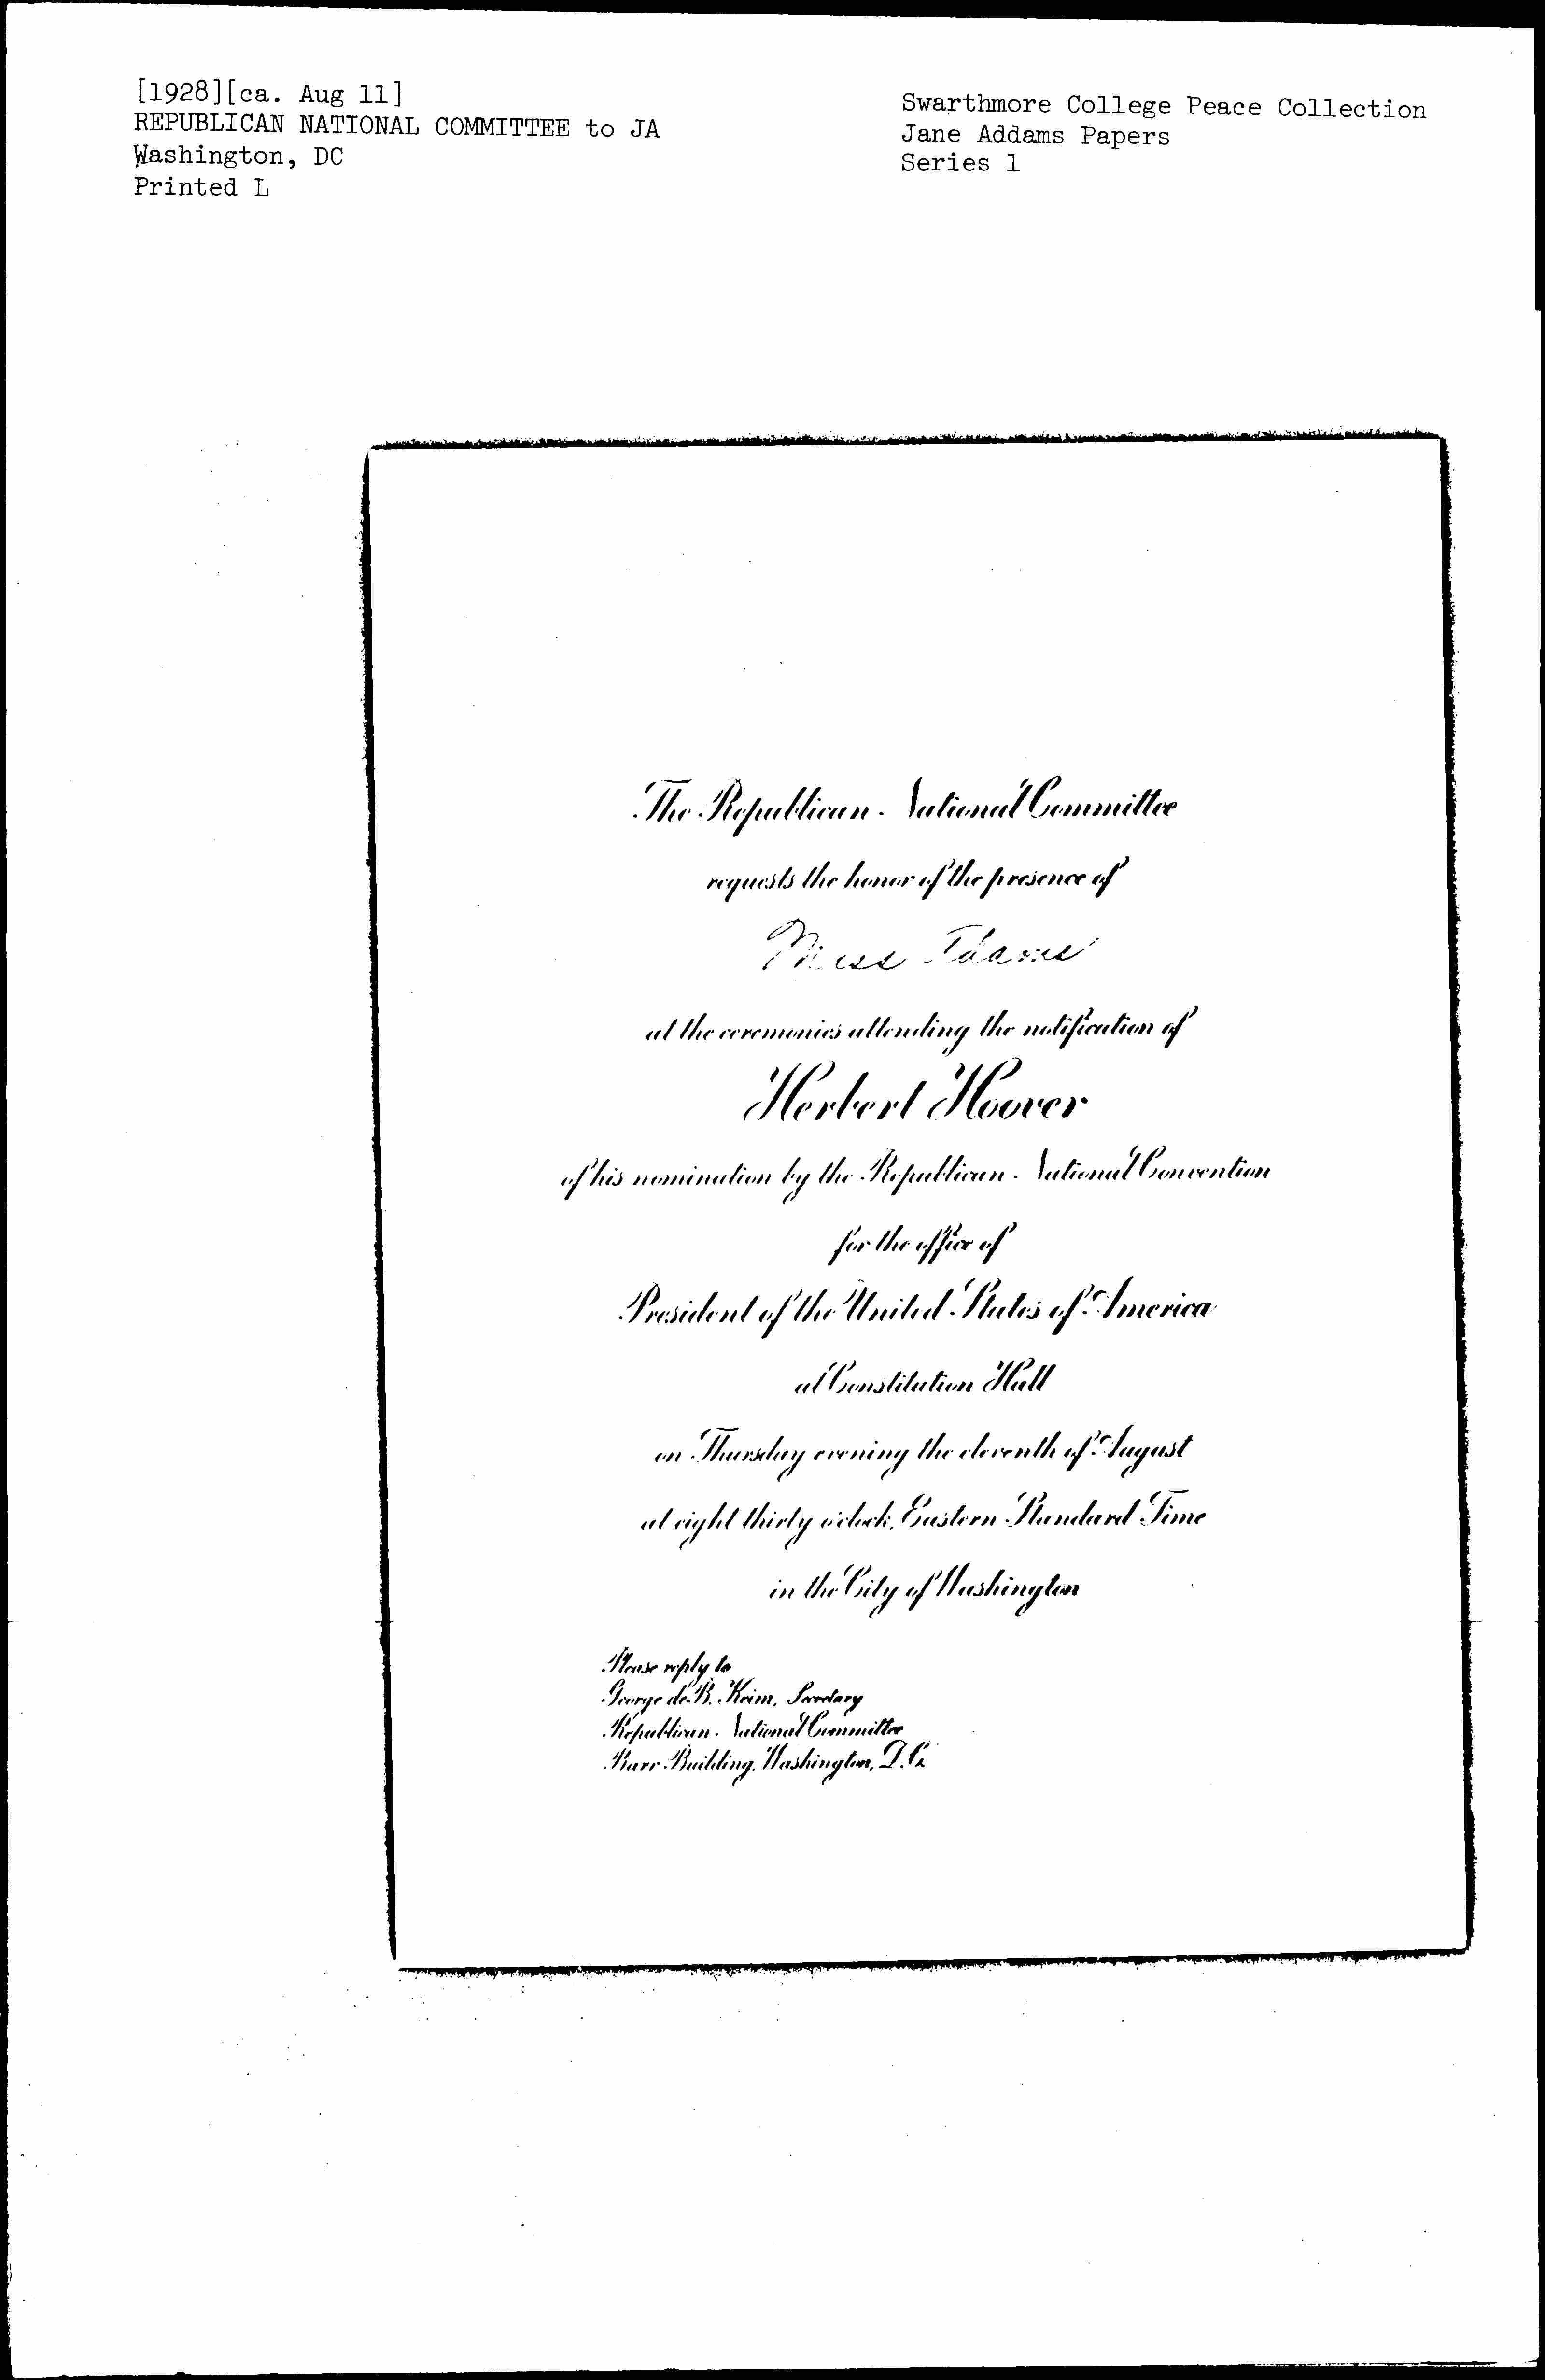 [1928][ca. Aug 11]
REPUBLICAN NATIONAL COMMITTEE to JA
Washington, DC
Printed L
Swarthmore College Peace Collection
Jane Addams Papers
Series 1
The Republican National Committee
requests the honor of the presence of
Miss Adams
at the ceremonies attending the notification of
Herbert Hoover
of his nomination by the Republican National Convention
for the office of
President of the United States of America
at Constitution Hall
on Thursday evening the eleventh of August
at eight thirty o'clock, Eastern Standard Time
in the City of Washington
Please reply to
George de B. Keim, Secretary
Republican National Committee
Barr Building, Washington, D.C.